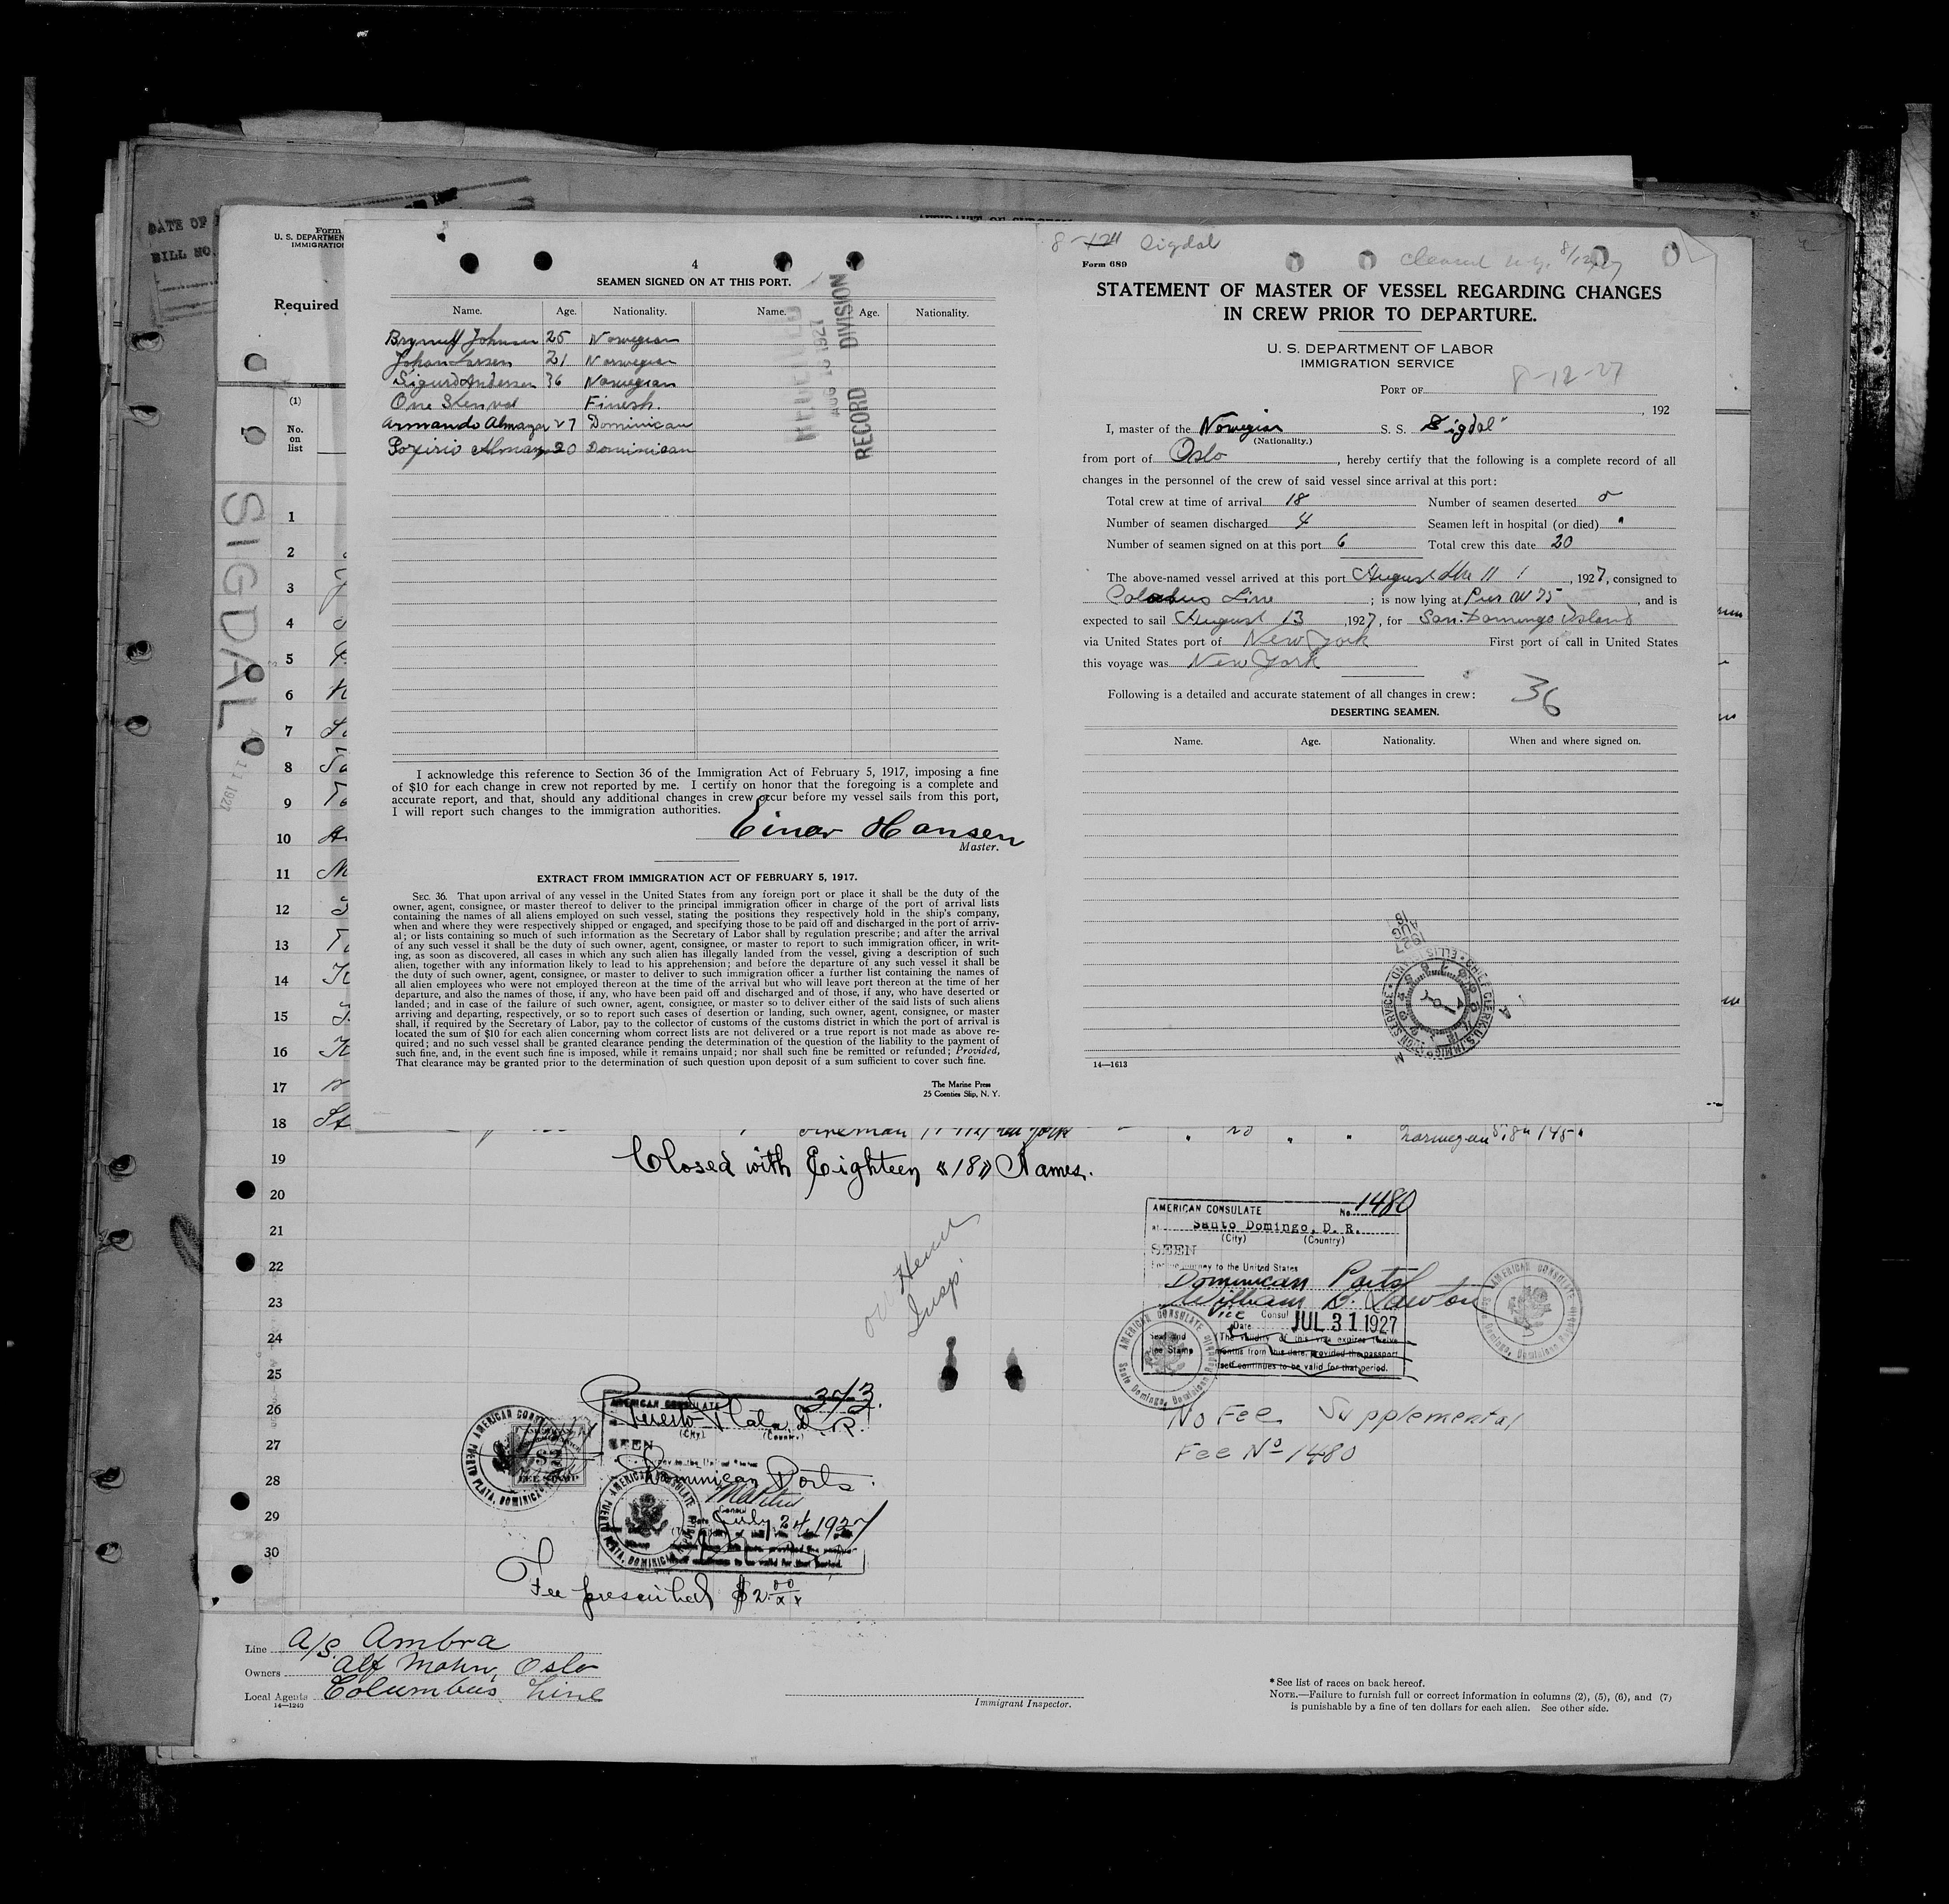 DATE OF
BILL NO.
Form
U. S. DEPARTMEN
IMMIGRATIO
Required
(1)
No.
on
list
SIGDAL
11 1927
1
2
3
4
5
6
7
8
9
10
11
12
13
14
15
16
17
18
19
20
21
22
23
24
25
26
27
28
29
30
4
SEAMEN SIGNED ON AT THIS PORT.
Name. Age. Nationality. Name. Age. Nationality.
Johnsen 25 Norwegian
Johan Larsen 21 Norwegian
Sigurd Andersen 36 Norwegian
Finesh.
Armando Almanzar 27 Dominican
20 Dominican
AUG 1927
RECORD DIVISION
I acknowledge this reference to Section 36 of the Immigration Act of February 5, 1917, imposing a fine
of $10 for each change in crew not reported by me. I certify on honor that the foregoing is a complete and
accurate report, and that, should any additional changes in crew occur before my vessel sails from this port,
I will report such changes to the immigration authorities.
Einar Hansen
Master.
EXTRACT FROM IMMIGRATION ACT OF FEBRUARY 5, 1917.
SEC. 36. That upon arrival of any vessel in the United States from any foreign port or place it shall be the duty of the
owner, agent, consignee, or master thereof to deliver to the principal immigration officer in charge of the port of arrival lists
containing the names of all aliens employed on such vessel, stating the positions they respectively hold in the ship's company,
when and where they were respectively shipped or engaged, and specifying those to be paid off and discharged in the port of arriv-
al; or lists containing so much of such information as the Secretary of Labor shall by regulation prescribe; and after the arrival
of any such vessel it shall be the duty of such owner, agent, consignee, or master to report to such immigration officer, in writ-
ing, as soon as discovered, all cases in which any such alien has illegally landed from the vessel, giving a description of such
alien, together with any information likely to lead to his apprehension; and before the departure of any such vessel it shall be
the duty of such owner, agent, consignee, or master to deliver to such immigration officer a further list containing the names of
all alien employees who were not employed thereon at the time of the arrival but who will leave port thereon at the time of her
departure, and also the names of those, if any, who have been paid off and discharged and of those, if any, who have deserted or
landed; and in case of the failure of such owner, agent, consignee, or master so to deliver either of the said lists of such aliens
arriving and departing, respectively, or so to report such cases of desertion or landing, such owner, agent, consignee, or master
shall, if required by the Secretary of Labor, pay to the collector of customs of the customs district in which the port of arrival is
located the sum of $10 for each alien concerning whom correct lists are not delivered or a true report is not made as above re-
quired; and no such vessel shall be granted clearance pending the determination of the question of the liability to the payment of
such fine, and, in the event such fine is imposed, while it remains unpaid; nor shall such fine be remitted or refunded; Provided,
That clearance may be granted prior to the determination of such question upon deposit of a sum sufficient to cover such fine.
The Marine Press
25 Coenties Slip, N. Y.
Sigdal
Form 689
Cleared N.Y. 8/12/27
STATEMENT OF MASTER OF VESSEL REGARDING CHANGES
IN CREW PRIOR TO DEPARTURE.
U. S. DEPARTMENT OF LABOR
IMMIGRATION SERVICE
8-12-27
PORT OF
, 192
I, master of the Norwegian S. S. Sigdal"
(Nationality.)
from port of Oslo , hereby certify that the following is a complete record of all
changes in the personnel of the crew of said vessel since arrival at this port:
Total crew at time of arrival 18 Number of seamen deserted 0
Number of seamen discharged 4 Seamen left in hospital (or died) "
Number of seamen signed on at this port 6 Total crew this date 20
The above-named vessel arrived at this port August the 11 , 1927, consigned to
Line ; is now lying at Pier W 75 , and is
expected to sail August 13 , 1927, for San. Domingo Island
via United States port of New York First port of call in United States
this voyage was New York
Following is a detailed and accurate statement of all changes in crew: 36
DESERTING SEAMEN.
Name. Age. Nationality. When and where signed on.
1927 AUG 18
CHIEF CLERK U.S. IMMIGRATION SERVICE ELLIS ISLAND
14—1613
Fireman New York
20 Norwegian 5,8" 145
Closed with Eighteen «18» Names.
Insp.
AMERICAN CONSULATE No. 1480
at Santo Domingo, D. R.
(City) (Country)
SEEN
For the journey to the United States
Dominican Ports
William B. Lawton
Vice Consul
Date JUL 31 1927
Seal and
Fee Stamp
The validity of this visa expires twelve
months from this date, provided the passport
itself continues to be valid for that period.
AMERICAN CONSULATE Santo Domingo, Dominican Republic
AMERICAN CONSULATE Santo Domingo, Dominican Republic
No Fee Supplemental
Fee No 1480
AMERICAN CONSULATE
Puerto Plata, D. R.
(City) (Country)
SEEN
Dominican Ports.
Consul
Date July 24, 1927
AMERICAN CONSULATE PUERTO PLATA, DOMINICAN REPUBLIC
AMERICAN CONSULATE PUERTO PLATA, DOMINICAN
Fee prescribed $2.00
Line A/S. Ambra
Owners Alf Mohn, Oslo
Local Agents Columbus Line
14—1240
Immigrant Inspector.
* See list of races on back hereof.
NOTE.—Failure to furnish full or correct information in columns (2), (5), (6), and (7)
is punishable by a fine of ten dollars for each alien. See other side.